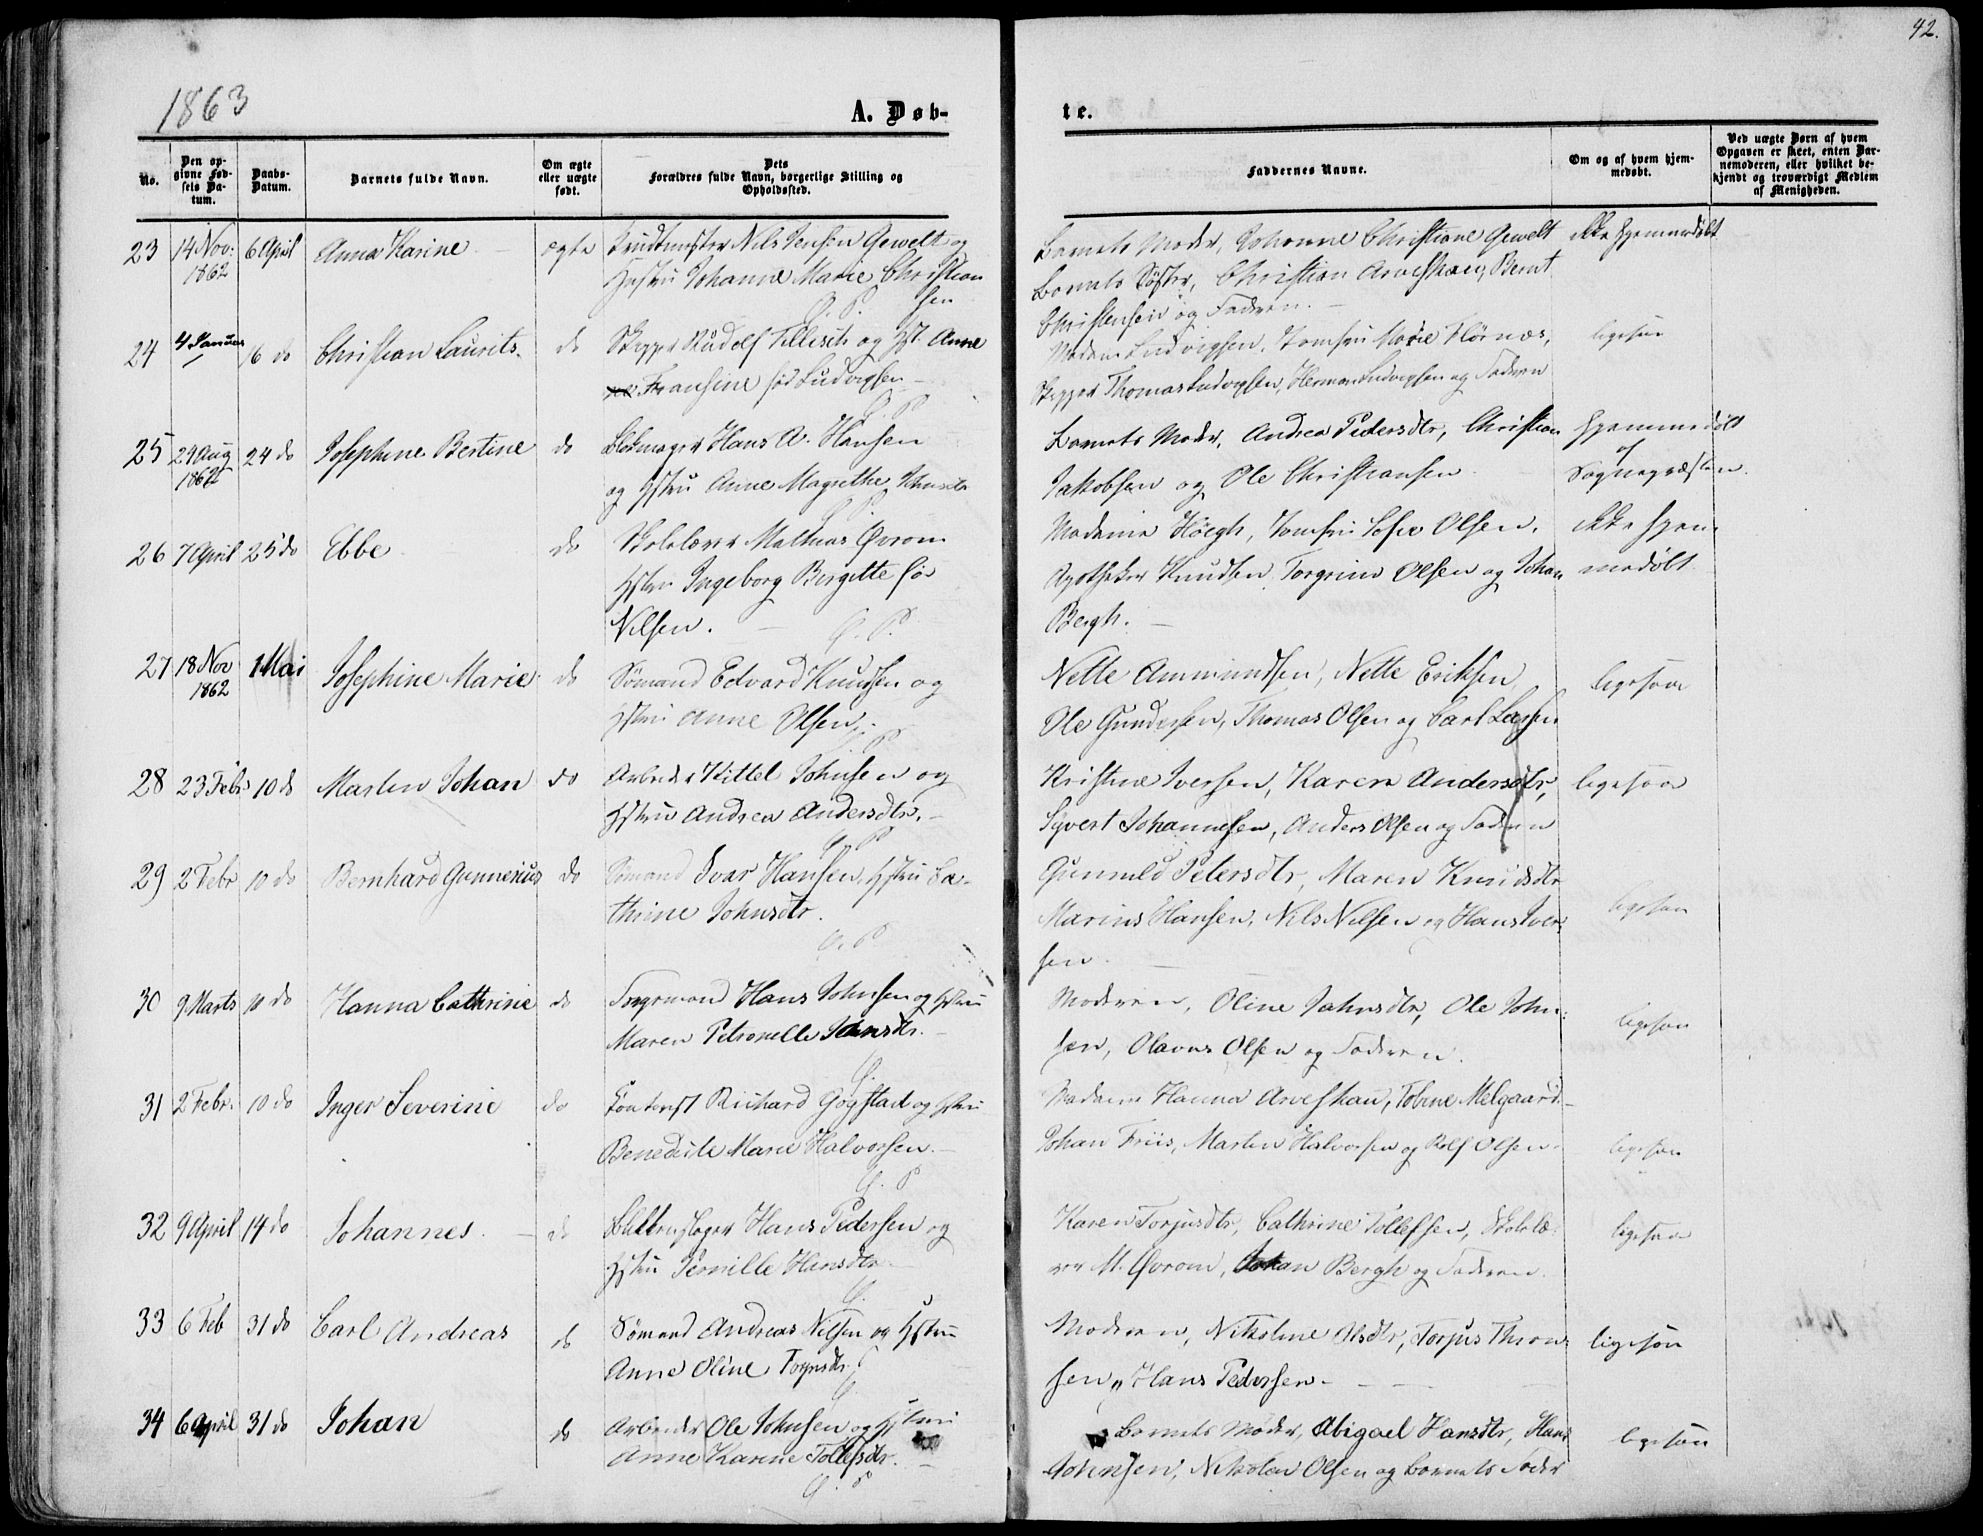 42.
1863
A. Døb-
te.
No.
Den op-
givne Fød-
sels Da-
tum.
Daabs-
Datum.
Barnets fulde Navn.
Om ægte
eller uægte
født.
Dets
Forældres fulde Navn, borgerlige Stilling og
Opholdssted.
Faddernes Navne.
Om og af hvem hjem-
medøbt.
Ved uægte Børn af hvem
Opgaven er skeet, enten Bar-
nemoderen, eller hvilket be-
kjendt og troværdigt Medlem
af Menigheden.
23 14 Nov. 6 April Anna Karine ægte Nils Jensen Gewelt og
1862 Hustru Johanne Marie Christian
sen
Barnets Moder, Johanne Christiane Gewelt ikke hjemmedøbt
Barnets Søster, Christian Arveskau, Bernt
Christensen og Faderen.
24 4 Januar 16 do Christian Laurits do Skipper Rudolf Tellisch og Hst. Anne
Fransine fød Ludvigsen
Madam Ludvigsen, Jomfru Marie Hornæs, ligesaa
Skipper Thomas Ludvigsen, Herman Ludvigsen og Faderen
25 29 Aug 24 do Josephine Bertine do Blokmager Hans A. Hansen
1862 og Hstru Anne Magrethe
Barnets Moder, Andrea Pedersdtr, Christian hjemmedøbt
af
Jakobsen og Ole Christiansen Sognepræsten.
26 7 April 25 do Ebbe do Skolelærer Mathias Qvrom
Hstru Ingeborg Birgitte fød
Nilsen.
Madame Høegh, Jomfru Sofie Olsen, ikke hjem-
Apotheker Knudsen, Torgrim Olsen og Johan medøbt
Bergh.
27 18 Nov 1 Mai Josephine Marie do Sømand Edvard Knudsen og
1862 Hstru Anne Olsen.
Nelle Ammundsen, Nelle Eriksen, ligesaa
Ole Gundersen, Thomas Olsen og Carl Larsen
28 23 Febr 10 do Martin Johan do Arbeider Kittel Johnsen og
Hstru Andrea Andersdtr.
Kristine Iversen, Karen Andersdtr, ligesaa
Syvert Johannesen, Anders Olsen og Faderen
29 2 Febr 10 do Bernhard Gunnerius do Sømand Ivar Hansen, Hstru Ca-
thrine Johnsdtr.
Gunnild Petersdtr, Maren Knudsdtr
Marius Hansen, Nils Nilsen og Hans Iver- ligesaa
sen
30 9 Marts 10 do Hanna Cathrine do Hans Johnsen og Hstru
Maren Petronelle Johnsdtr.
Moderen, Oline Jahnsdtr, Ole John- ligesaa
sen, Olavus Olsen og Faderen.
31 2 Febr. 10 do Inger Severine do Kontorist Richard Gogstad og Hstru
Benedicte Marie Halvorsen.
Madame Hanna Arveskau, Tobine Melgaard
Johan Friis, Martin Halvorsen og Rolf Olsen. ligesaa
32 9 April 14 do Johannes do Blikkenslager Hans Pedersen og
Hstru Pernille Hansdtr.
Karen Torjusdtr, Cathrine Tollefsen, Skolelæ- ligesaa
rer M. Qvrom, Johan Bergh og Faderen.
33 6 Feb 31 do Carl Andreas do Sømand Andreas Nilsen og Hstru
Anne Oline Torjusdtr.
Moderen, Nikoline Olsdtr, Torjus Thron- ligesaa
sen, Hans Pedersen.
34 6 April 31 do Johan do Arbeider Ole Johnsen og Hstru
Anne Karine Tollefsdtr.
Barnets Moder, Abigael Hansdtr, Hans ligesaa
Johnsen, Nikolai Olsen og Barnets Fader